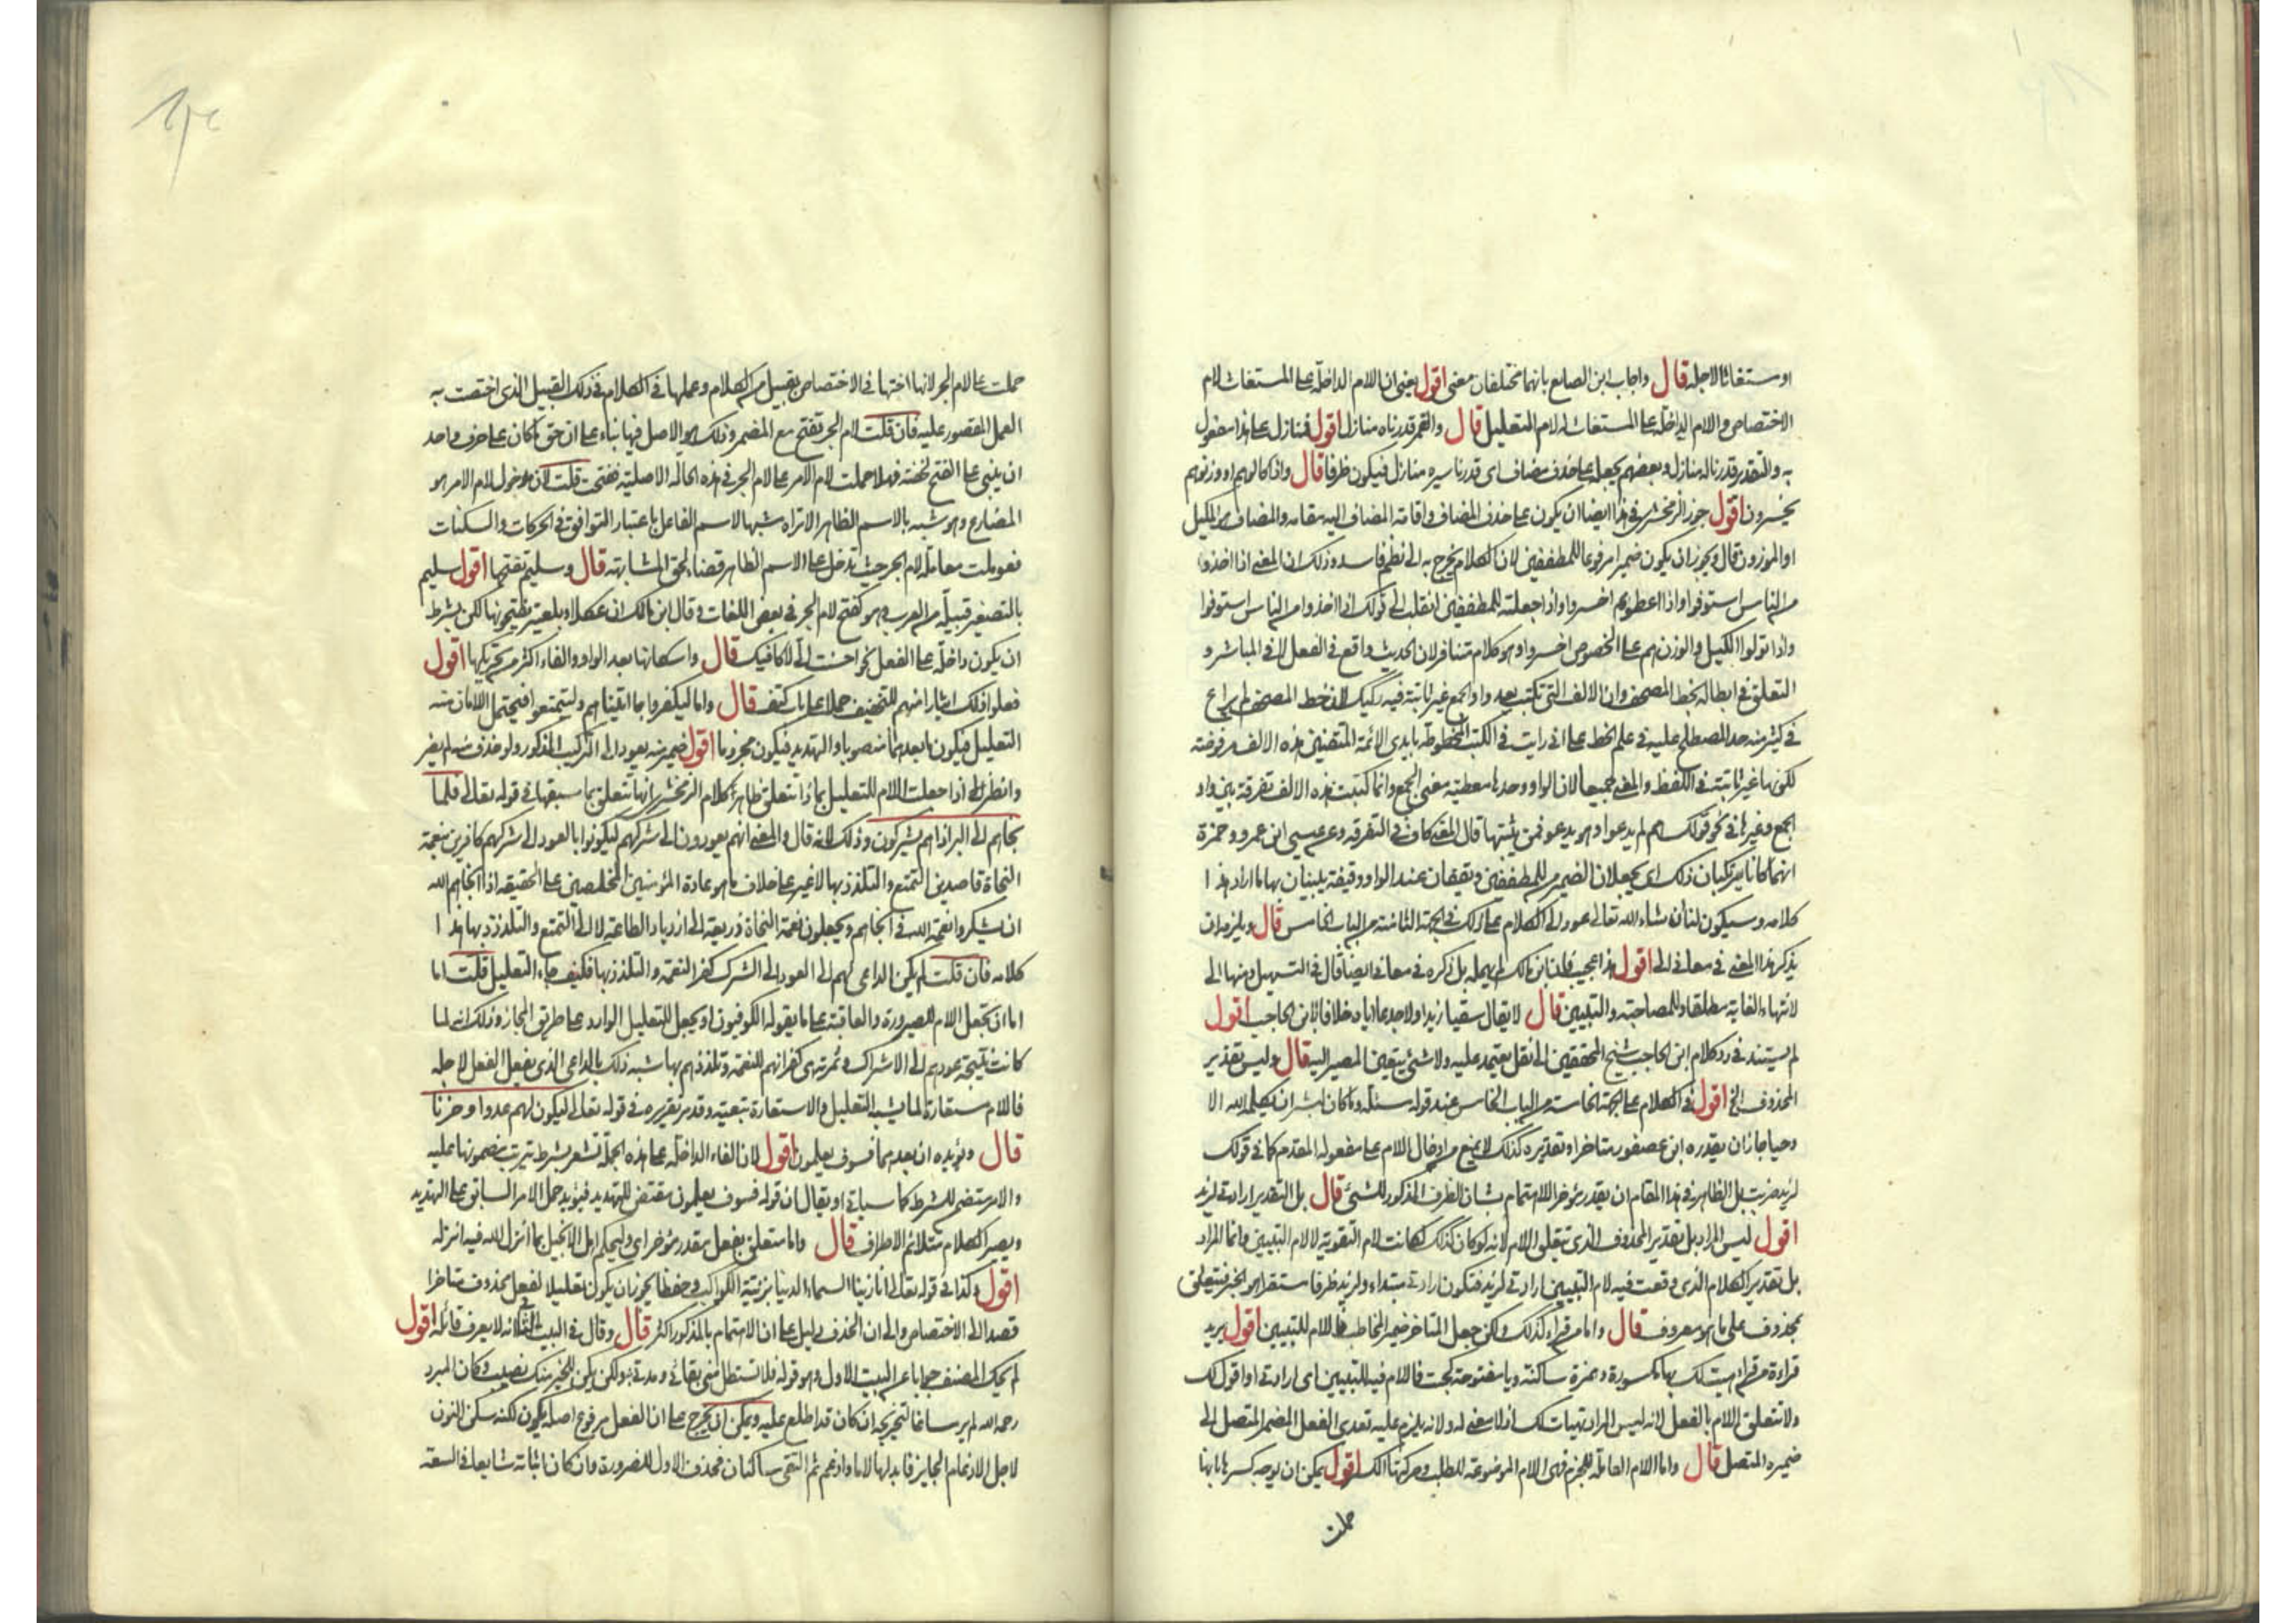 او مستغاثا لاجله قال واجاب ابن الصايع بانهما مختلفان معنى اقول يعنى ان اللام الداخلة على المستغاث لام
الاختصاص واللام الداخلة على المستغاث له لام التعليل قال والقمر قدرناه منازل اقول فمنازل على هذا مفعول
به والتقدير قدرنا له منازل وبعضهم يجعله على حذف مضاف اى قدرنا سيره منازل فيكون ظرفا قال واذا كالوهم او وزنوهم
يخسرون اقول جوز الزمخشرى فى هذا ايضا ان يكون على حذف المضاف واقامة المضاف اليه مقامه والمضاف هو المكيل
او الموزون قال ويجوز ان يكون ضميرا مرفوعا للمطففين لان الكلام يخرج به الى نظم فاسد وذلك ان المعنى اذا اخذوا
من الناس استوفوا واذا اعطوهم اخسروا واذا جعلته للمطففين انقلب الى قولك اذا اخذوا من الناس استوفوا
واذا تولوا الكيل والوزن هم على الخصوص اخسروا وهو كلام متنافر لان الحديث واقع فى الفعل لا فى المباشر و
التعلق فى ابطاله بخط المصحف وان الالف التى تكتب بعد واو الجمع غير ثابتة فيه ركيك لان خط المصحف لم يراع
فى كثير منه حد المصطلح عليه فى علم الخط على انى رايت فى الكتب المخطوطة بايدى الائمة المتقنين هذه الالف مرفوضة
لكونها غير ثابتة فى اللفظ والمعنى جميعا لان الواو وحدها معطية معنى الجمع وانما كتبت هذه الالف تفرقة بين واو
الجمع وغيرها فى نحو قولك هم لم يدعوا وهو يدعو فمن لم يثبتها قال المعنى كاف فى التفرقة وعن عيسى ابن عمرو وحمزة
انهما كانا يرتكبان ذلك اى يجعلان الضميرين للمطففين ويقفان عند الواو وقيفة يبينان بها ما ارادا هذا
كلامه وسيكون لنا ان شاء الله تعالى عود الى الكلام على ذلك فى الجهة الثامنة من الباب الخامس قال ويلزم ان
يذكر هذا المعنى فى معانى الى اقول هذا عجيب فان ابن مالك لم يهمله بل ذكره فى معانى ايضا قال فى التسهيل ومنها الى
لانتهاء الغاية مطلقا وللمصاحبة والتبيين قال لا يقال سقيا زيدا ولا جدعا اياه خلافا لابن الحاجب اقول
لم يستند فى رد كلام ابن الحاجب شيخ المحققين الى نقل يعتمد عليه ولا شئ يتعين المصير اليه قال وليس تقدير
المحذوف الخ اقول فى الكلام على الجهة الخامسة من الباب الخامس عند قوله مسئلة وما كان لبشر ان يكلمه الله الا
وحيا جاز ان يقدره ابن عصفور متاخرا وتقديره كذلك لا يمنع من ادخال اللام على مفعوله المقدم كما فى قولك
لزيد ضربت بل الظاهر فى هذا المقام ان يقدر مؤخرا للاهتمام بشان الظرف المذكور للشئ قال بل التقدير ارادتى لزيد
اقول ليس المراد بل تقدير المحذوف الذى تتعلق اللام لانه لو كان كذلك لكانت لام التقوية لا لام التبيين وانما المراد
بل تقدير الكلام الذى وقعت فيه لام التبيين ارادتى لزيد فتكون ارادتى مبتداء ولزيد ظرفا مستقرا هو الخبر فيتعلق
بمحذوف على ما هو معروف قال واما من قراء كذلك ولكن جعل المتاخر ضمير المخاطب فاللام للتبيين اقول يريد
قراءة من قراء هيت لك بهاء مكسورة وهمزة ساكنة وياء مفتوحة كجئت فاللام فيه للتبيين اى ارادتى او اقول لك
ولا تتعلق اللام بالفعل لانه ليس المراد تهيات لك اذ لا معنى له ولانه يلزم عليه تعدى الفعل المضمر المتصل الى
ضميره المتصل قال واما اللام العاملة للجزم فهى اللام الموضوعة للطلب وحركتها الكسر اقول يمكن ان يوجه كسرها بانها
حملت
حملت على لام الجر لانها اختها فى الاختصاص بقبيل من الكلام وعملها فى الكلام فى ذلك القبيل الذى اختصت به
العمل المقصور عليه فان قلت لام الجر تفتح مع المضمر وذلك هو الاصل فيها بناء على ان حق ما كان على حرف واحد
ان يبنى على الفتح لخفته فهلا حملت لام الامر على لام الجر فى هذه الحالة الاصلية ففتحت قلت لان مدخول لام الامر هو
المضارع وهو شبه بالاسم الظاهر الا تراه شبها لاسم الفاعل باعتبار التوافق فى الحركات والسكنات
فعوملت معاملة لام الجر حيث تدخل على الاسم الظاهر قضاء لحق المشابهة قال وسليم تفتحها اقول سليم
بالتصغير قبيلة من العرب وهو كفتح لام الجر فى بعض اللغات وقال ابن مالك ان عكلا وبلعنبر يفتحونها لكن بشرط
ان يكون داخلة على الفعل نحو احسنت الى لاكافيك قال واسكانها بعد الواو والفاء اكثر من تحريكها اقول
فعلوا ذلك ايثارا منهم للتخفيف حملا على باب كتف قال واما ليكفروا بما اتيناهم وليتمتعوا فيحتمل اللامان منه
التعليل فيكون ما بعدهما منصوبا والتهديد فيكون مجزوما اقول ضمير منه يعود الى التركيب المذكور ولو حذف منه لم يضر
وانظر الى اذا جعلت اللام للتعليل بماذا تتعلق ظاهر كلام الزمخشرى انها تتعلق بما سبقها فى قوله تعالى فلما
نجاهم الى البر اذا هم يشركون وذلك لانه قال والمعنى انهم يعودون الى شركهم ليكونوا بالعود الى شركهم كافرين بنعمة
النجاة قاصدين التمتع والتلذذ بها لا غير على خلاف ما هو عادة المؤمنين المخلصين على الحقيقة اذا انجاهم الله
ان يشكروا نعمة الله فى انجاهم ويجعلون نعمة النجاة ذريعة الى ازدياد الطاعة لا الى التمتع والتلذذ بها هذا
كلامه فان قلت لم يكن الداعى لهم الى العود الى الشرك كفر النعمة والتلذذ بها فكيف جاء التعليل قلت اما
اما ان تجعل اللام للصيرورة والعاقبة على ما يقوله الكوفيون او يجعل للتعليل الوارد على طريق المجاز وذلك انه لما
كانت نتيجة عودهم الى الاشراك وثمرته هى كفرانهم للنعمة وتلذذهم بها شبه ذلك بالداعى الذى يفعل الفعل لاجله
فاللام مستعارة لما يشبه التعليل والاستعارة تبعية وقد مر تقريره فى قوله تعالى ليكون لهم عدوا وحزنا
قال ويؤيده ان بعدهما فسوف يعلمون اقول لان الفاء الداخلة على هذه الجملة تشعر بشرط يترتب مضمونها عليه
والامر متضمن للشرط كما سياتى او يقال ان قوله فسوف يعلمون مقتض للتهديد فيؤيد حمل الامر السابق على التهديد
ويصير الكلام متلائم الاطراف قال واما متعلق بفعل مقدر مؤخر اى وليحكم اهل الانجيل بما انزل الله فيه انزله
اقول وكذا فى قوله تعالى انا زينا السماء الدنيا بزينة الكواكب وحفظا يجوز ان يكون تعليلا لفعل محذوف متاخرا
قصدا الى الاختصاص والى ان الحذف دليل على ان الاهتمام بالمذكور اكثر قال وقال فى البيت الثانى انه لا يعرف قائله اقول
لم يحك المصنف جوابا عن البيت الاول وهو قوله فلا تستطل منى بقائى ومدتى ولكن يكن للخير منك نصيب وكان المبرد
رحمه الله لم ير مساغا لتخريجه ان كان قد اطلع عليه ويمكن ان يخرج على ان الفعل مرفوع اصله يكون لكنه سكن النون
لاجل الادغام الجايز فابدلها لاما وادغم ثم التقى ساكنان فحذف الاول للضرورة وان كان اثباته شايعا فى السعة